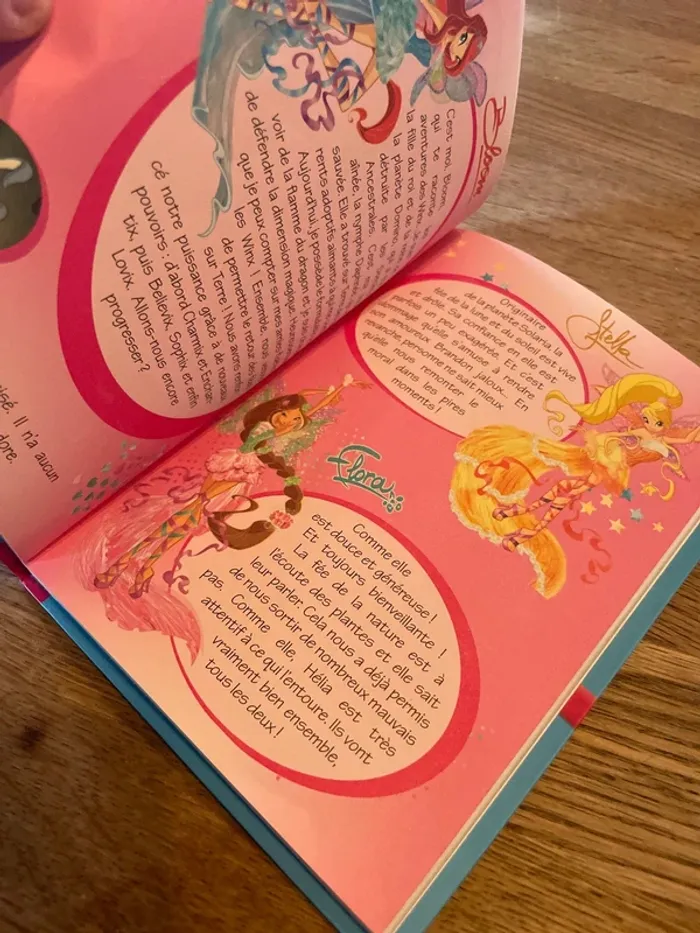 Bloom
C'est moi, Bloom,
qui te raconte les
aventures des Winx. Je suis
la fille du roi et de la
la planète Domino, qui
détruite par les
Ancestrales. C'est
aînée, la nymphe Daphnée
sauvée. Elle a trouvé sur Terre
rents adoptifs aimants à qui
Aujourd'hui, je possède le
voir de la flamme du dragon et je
de défendre la dimension magique.
que je peux compter sur mes amies
les Winx ! Ensemble, nous
de permettre le retour des
sur Terre ! Nous avons
cé notre puissance grâce à de nouveaux
pouvoirs : d'abord Charmix et Enchan-
tix, puis Believix, Sophix et enfin
Lovix. Allons-nous encore
progresser ?
isé. Il n'a aucun
dore.
Stella
Originaire
de la planète Solaria, la
fée de la lune et du soleil est vive
et drôle. Sa confiance en elle est
parfois un peu exagérée. Et c'est
dommage qu'elle s'amuse à rendre
son amoureux, Brandon, jaloux... En
revanche, personne ne sait mieux
qu'elle nous remonter le
moral dans les pires
moments !
Flora
Comme elle
est douce et généreuse !
Et toujours bienveillante !
La fée de la nature est à
l'écoute des plantes et elle sait
leur parler. Cela nous a déjà permis
de nous sortir de nombreux mauvais
pas. Comme elle, Hélia est très
attentif à ce qui l'entoure. Ils vont
vraiment bien ensemble,
tous les deux !